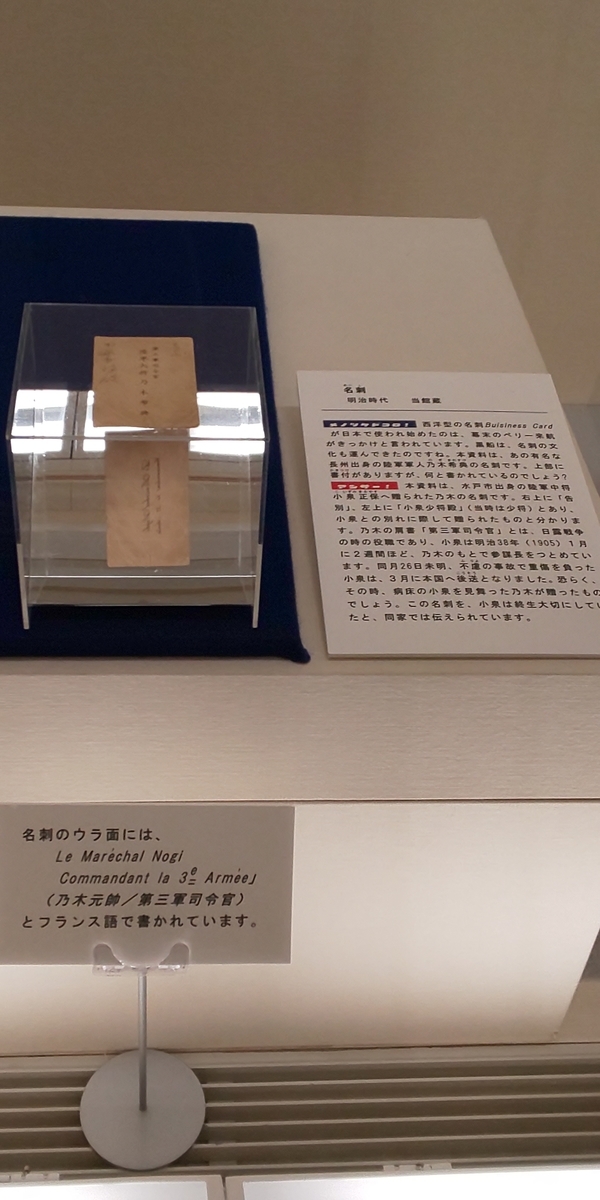 名刺
明治時代　当館蔵
ミノソケドコロ！ 西洋型の名刺Buisiness Card
が日本で使われ始めたのは、幕末のペリー来航
がきっかけと言われています。黒船は、名刺の文
化も運んできたのですね。本資料は、あの有名な
長州出身の陸軍軍人乃木希典の名刺です。上部に
書付がありますが、何と書かれているのでしょう？
アンサー！ 本資料は、水戸市出身の陸軍中将
小泉正保へ贈られた乃木の名刺です。右上に「告
別」、左上に「小泉少将殿」（当時は少将）とあり、
小泉との別れに際して贈られたものと分かりま
す。乃木の肩書「第三軍司令官」とは、日露戦争
の時の役職であり、小泉は明治38年（1905）1月
に2週間ほど、乃木のもとで参謀長をつとめてい
ます。同月26日未明、不慮の事故で重傷を負った
小泉は、3月に本国へ後送となりました。恐らく、
その時、病床の小泉を見舞った乃木が贈ったもの
でしょう。この名刺を、小泉は終生大切にしてい
たと、同家では伝えられています。
名刺のウラ面には、
Le Maréchal Nogi
Commandant la 3e Armée」
（乃木元帥／第三軍司令官）
とフランス語で書かれています。